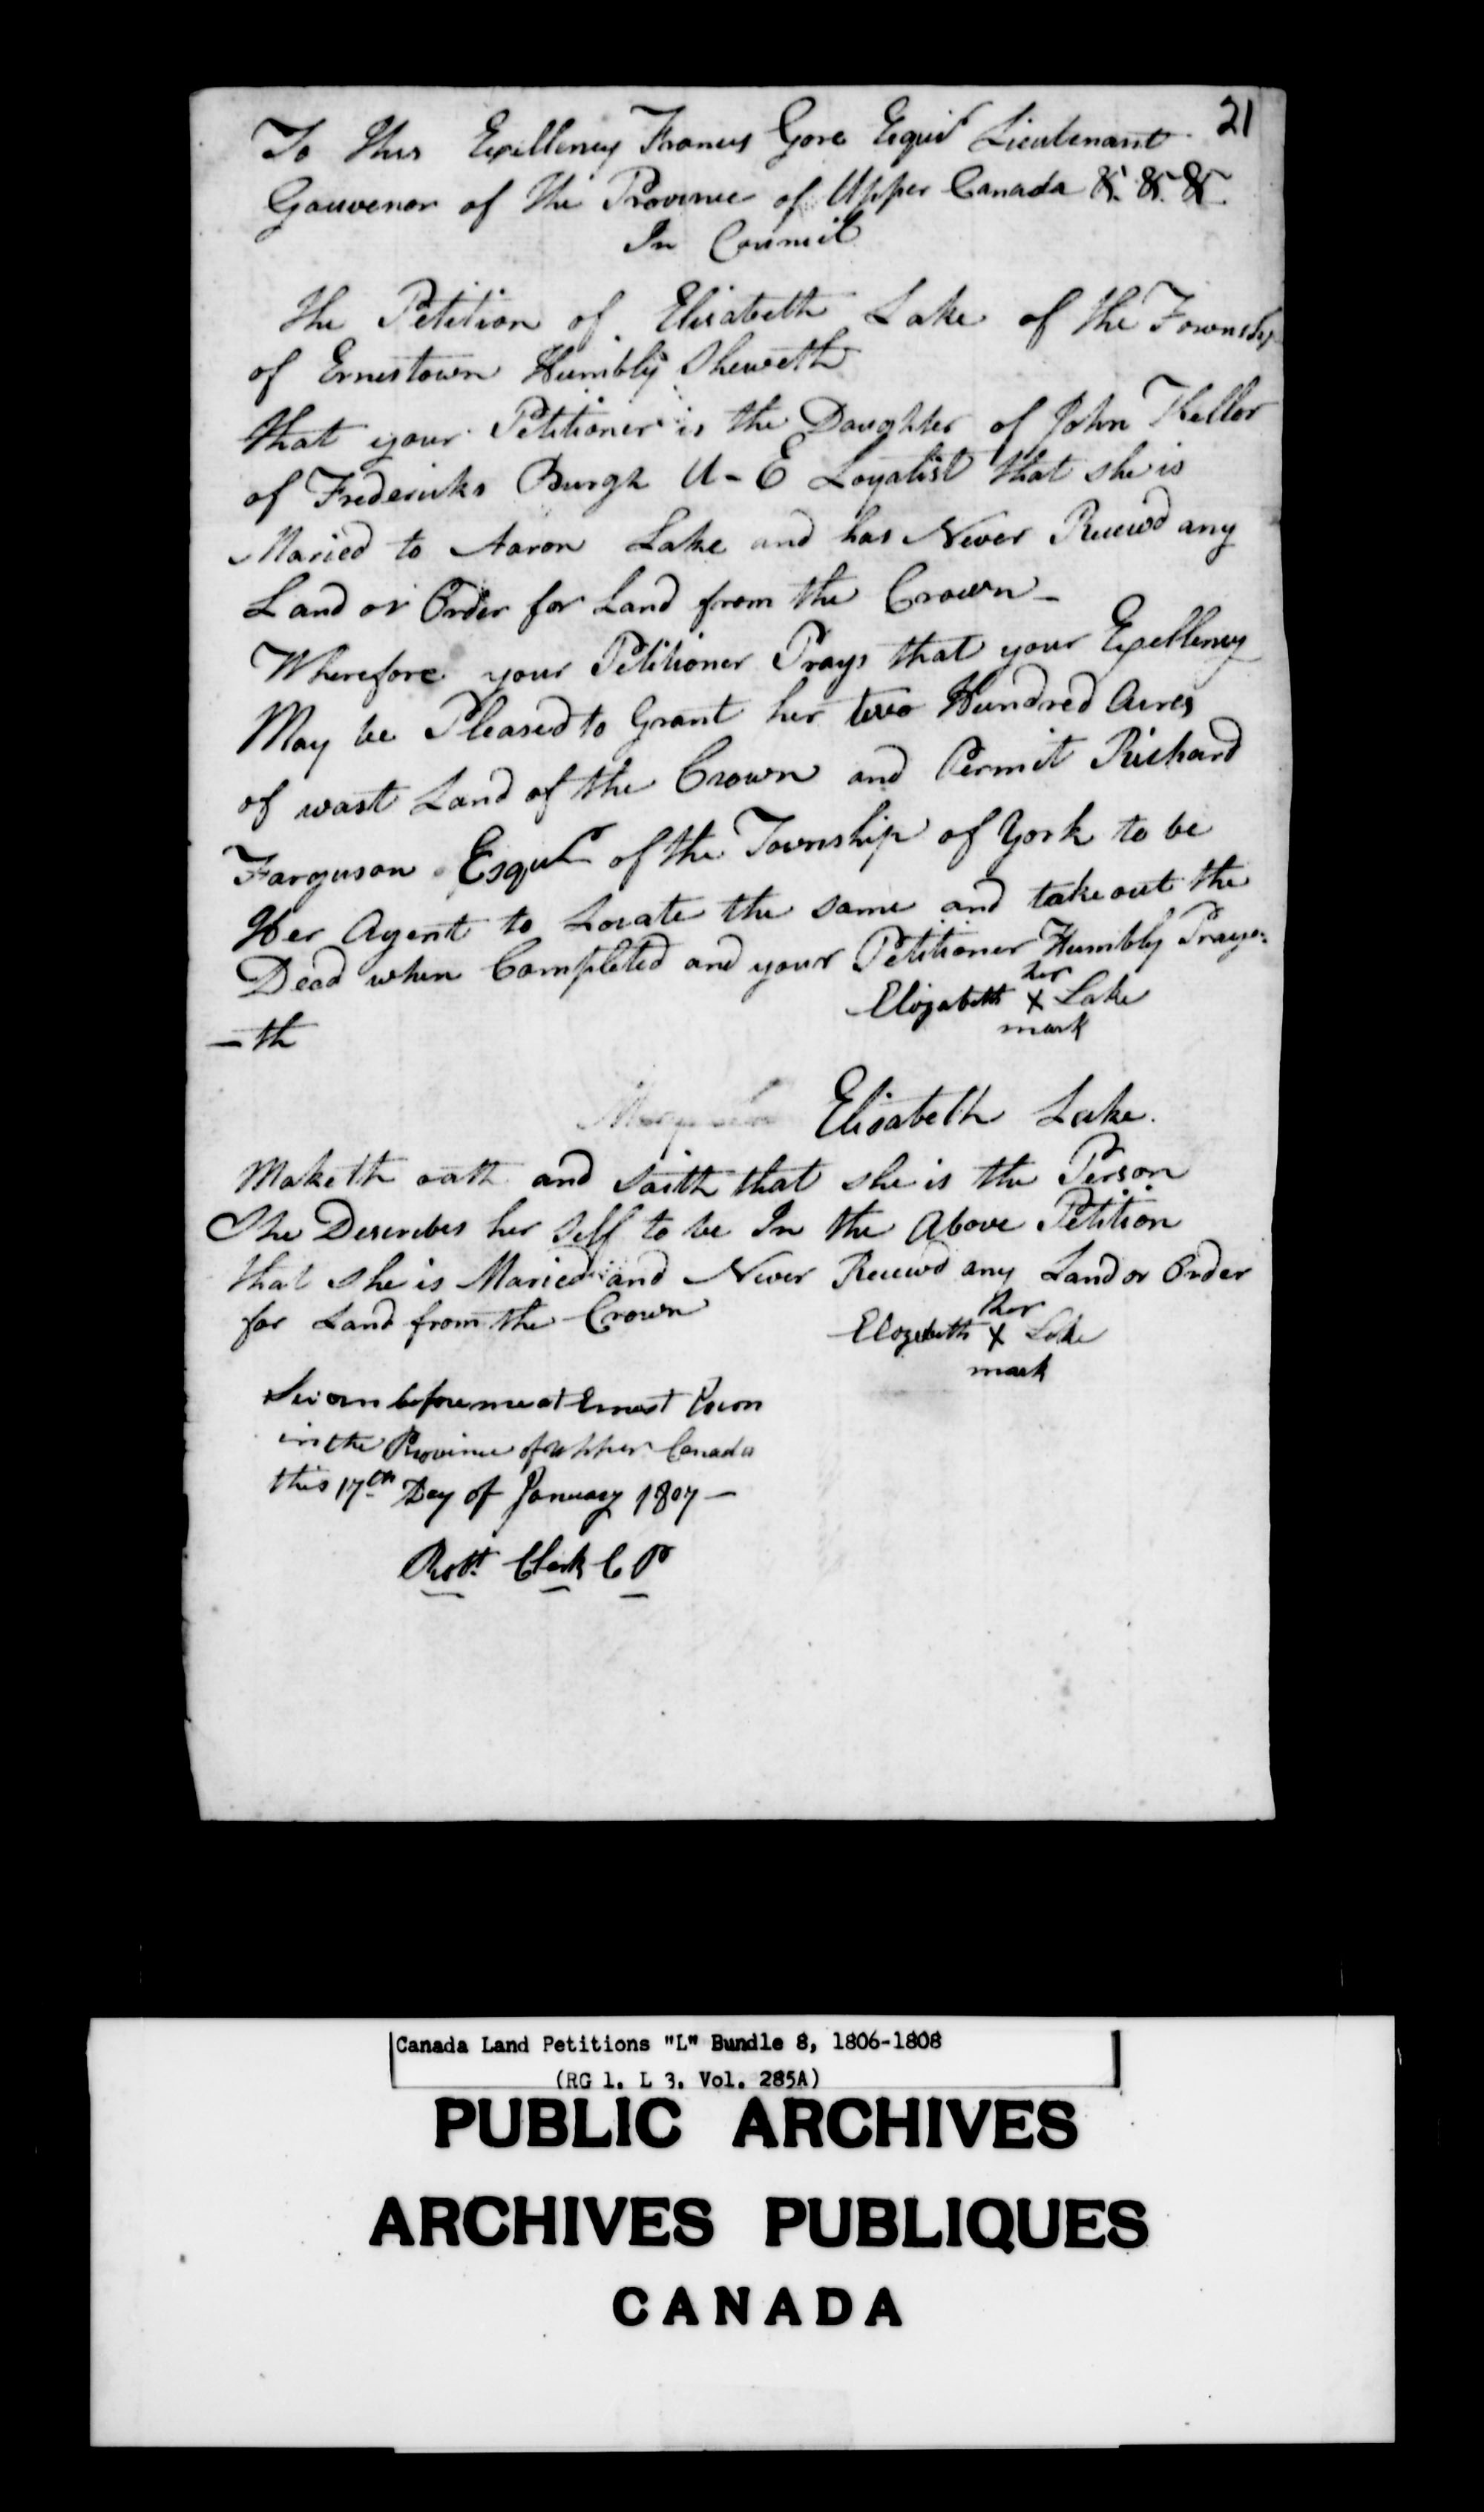 21
To His Exellency Francis Gore Esquir Lieutenant
Gouvenor of the Province of Upper Canada &c. &c. &c.
In Council
the Petition of Elisabeth Lake of the Township
of Ernestown Humbly Sheweth
that your Petitioner is the Daughter of John Kellor
of Fredericks Burgh U-E Loyalist that she is
Maried to Aaron Lake and has Never Receivd any
Land or Order for Land from the Crown -
Wherefore your Petitioner Prays that your Exellency
May be Pleased to Grant her two Hundred Acres
of wast Land of the Crown and Permit Richard
Farguson Esqur of the Township of York to be
Her Agent to Locate the same and take out the
Dead when Completed and your Petitioner Humbly Praye-
her
Elizabeth X Lake
mark
- th
Elisabeth Lake.
Maketh oath and saith that she is the Person
She Describes her Self to be In the Above Petition
that she is Maried and Never Receivd any Land or Order
for Land from the Crown
her
Elizabeth X Lake
mark
Sworn before me at Ernest Town
in the Province of Upper Canada
this 17th Day of January 1807 -
Robt. Clark C P
Canada Land Petitions "L" Bundle 8, 1806-1808
(RG 1, L 3, Vol. 285A)
PUBLIC ARCHIVES
ARCHIVES PUBLIQUES
CANADA